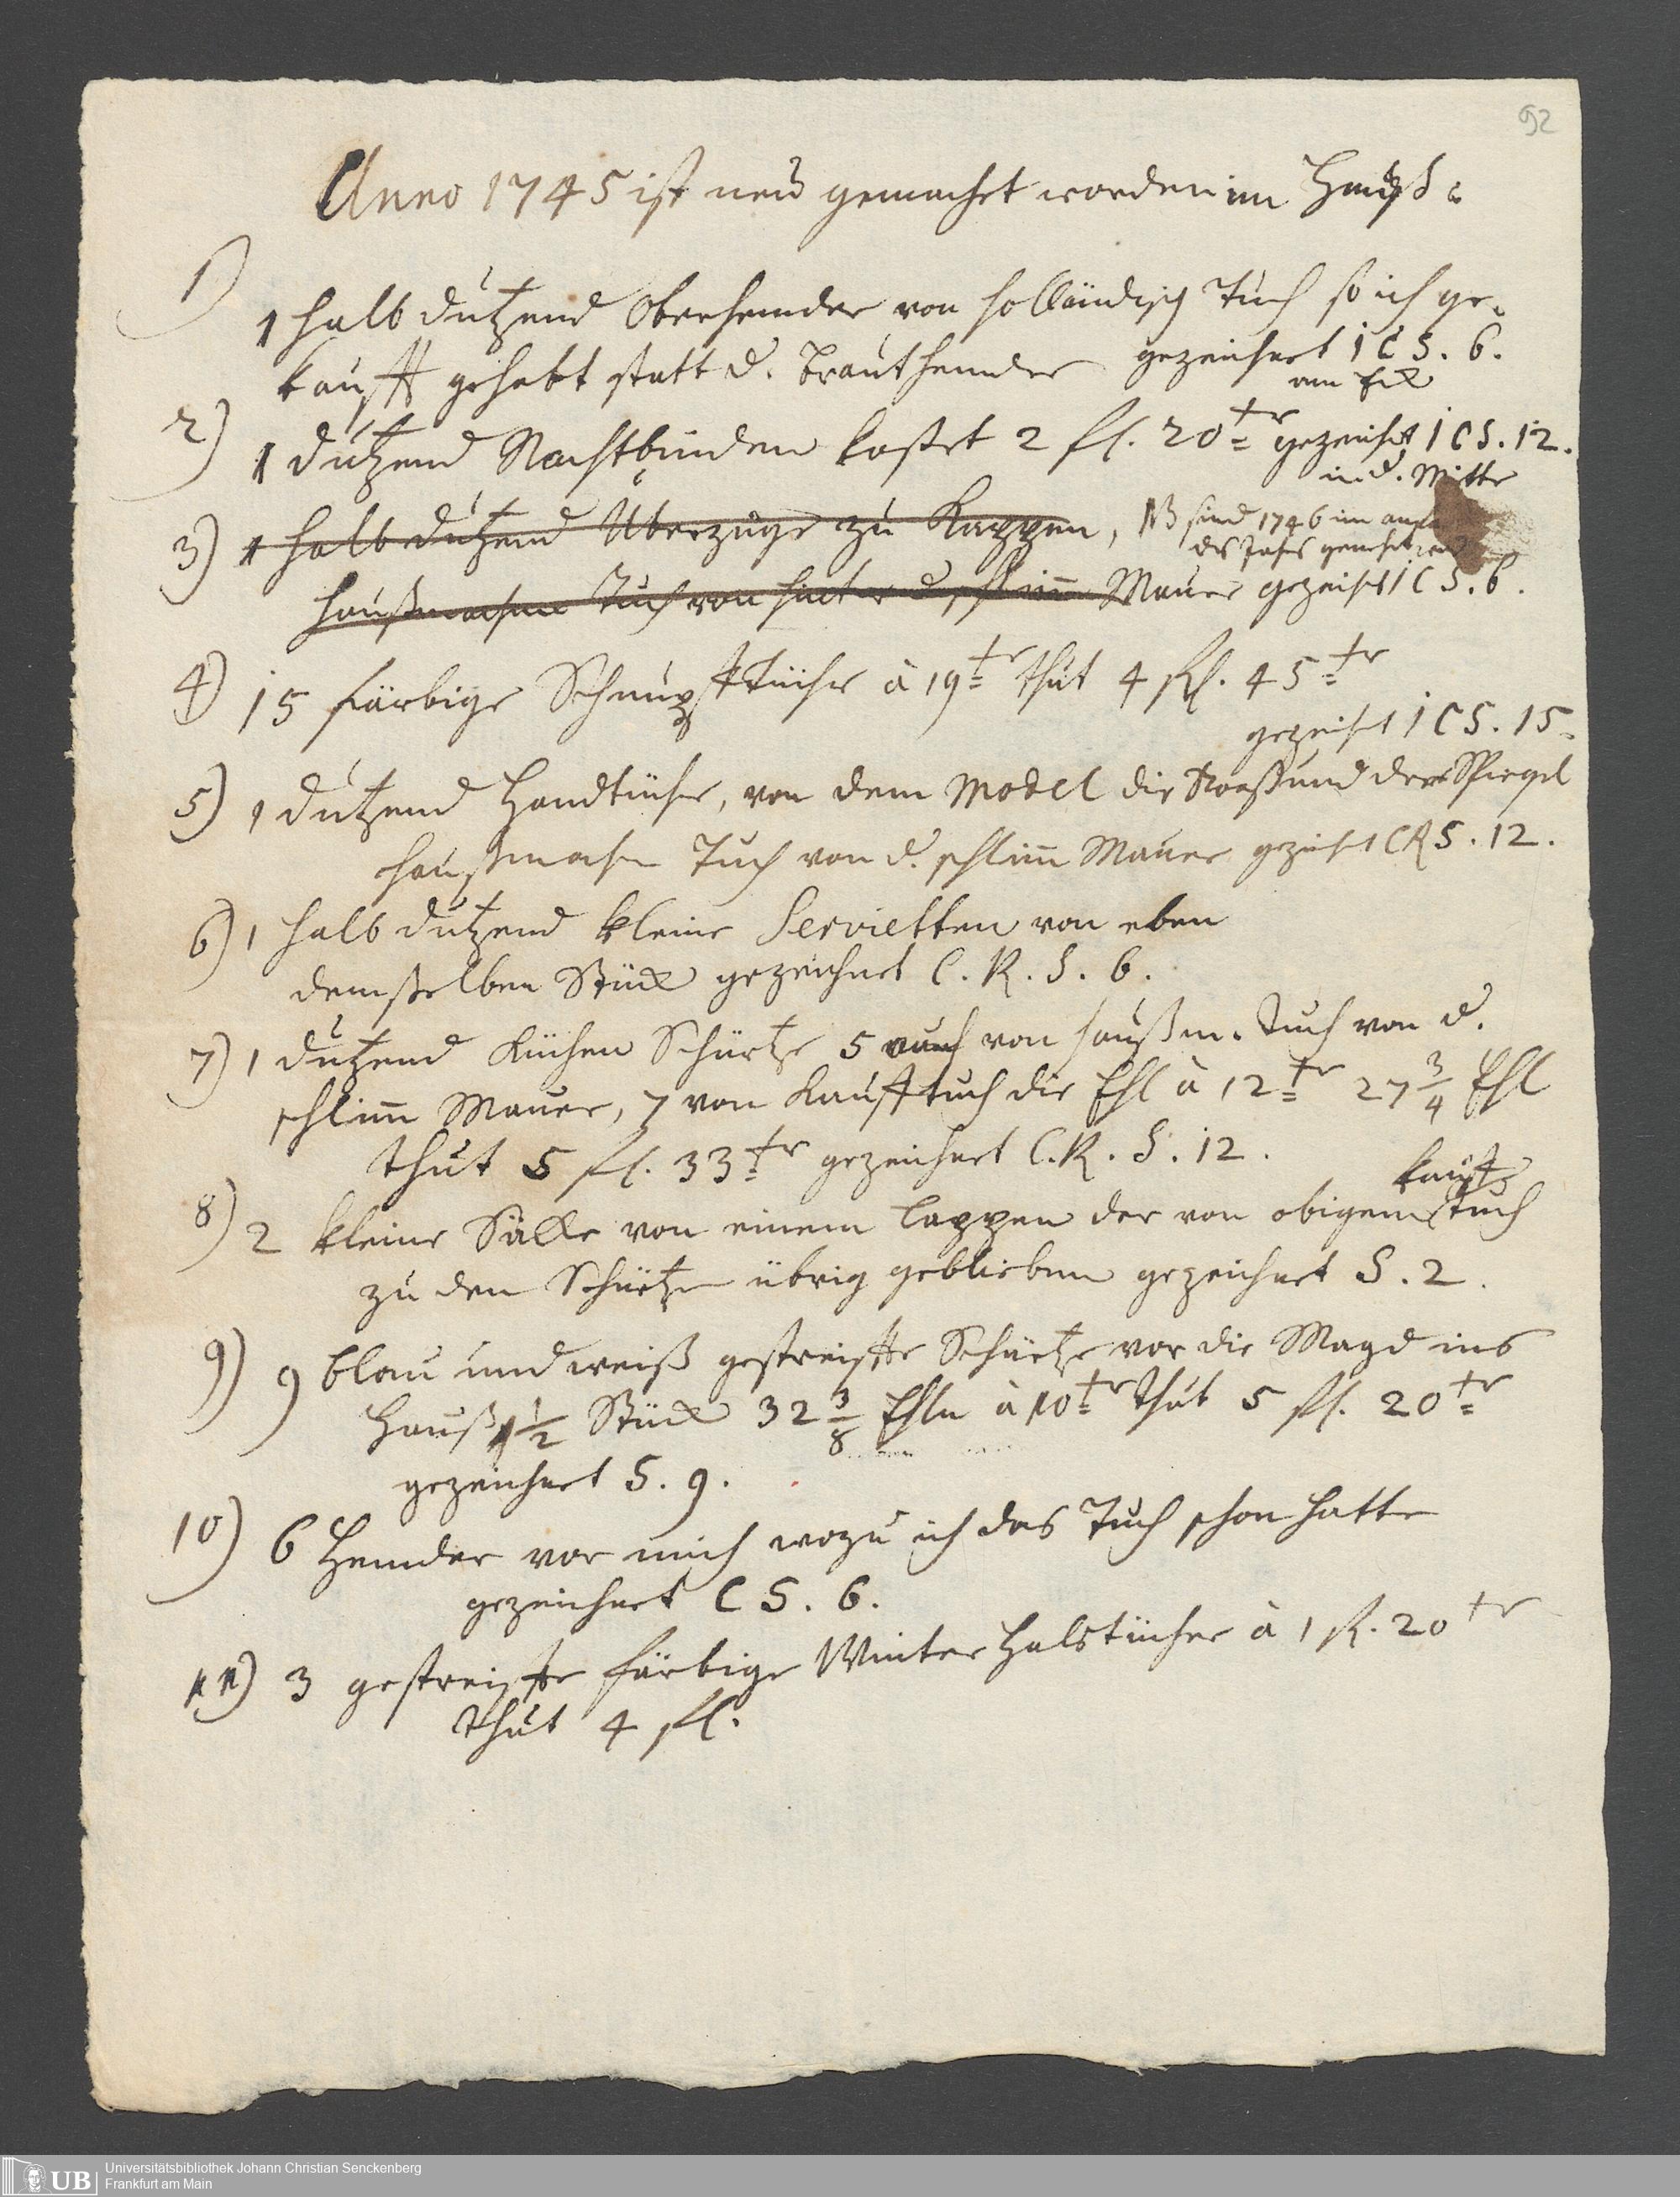 92
Anno 1745 ist neu gemacht worden im Hauß:
1) 1 halb dutzend Oberhemder von holländisch Tuch so ich ge-
kaufft gehabt statt d. Brauthemder gezeichnet i C S. 6.
am Eck
2) 1 dutzend Nachtbinden kostet 2 fl. 20 xr gezeicht i C S. 12.
in d. Mitte
3) 1 halb dutzend Überzüge zu Kappen, NB sind 1746 im
des Jahrs gemacht
haußmachen Tuch von hinter d. schlimm Mauer gezeicht i C S. 6.
4) 15 färbige Schnupfftücher à 19 xr thut 4 fl. 45 xr
gezeicht i C S. 15.
5) 1 dutzend Handtücher, von dem Model die Roeß und der Spiegel
haußmachen Tuch von d. schlimm Mauer gezeicht C R S. 12.
6) 1 halb dutzend kleine Servietten von eben
demselben Stück gezeichnet C. R. S. 6.
7) 1 dutzend Küchen Schürtze 5 auch von haußm. Tuch von d.
schlimm Mauer, 7 von Kaufftuch die Ehl à 12 xr 27 3/4 Ehl
thut 5 fl. 33 xr gezeichnet C. R. S. 12.
kauff
8) 2 kleine Säcke von einem Lappen der von obigem Tuch
zu den Schürtze übrig geblieben gezeichnet S. 2.
9) 9 blau und weiß gestreiffte Schürtze vor die Magd ins
Hauß 1 1/2 Stück 32 3/8 Ehln à 10 xr thut 5 fl. 20 xr
gezeichnet S. 9.
10) 6 Hemder vor mich wozu ich das Tuch schon hatte
gezeichnet C S. 6.
11) 3 gestreiffte färbige Winter Halstücher à 1 fl. 20 xr
thut 4 fl.
UB
Universitätsbibliothek Johann Christian Senckenberg
Frankfurt am Main